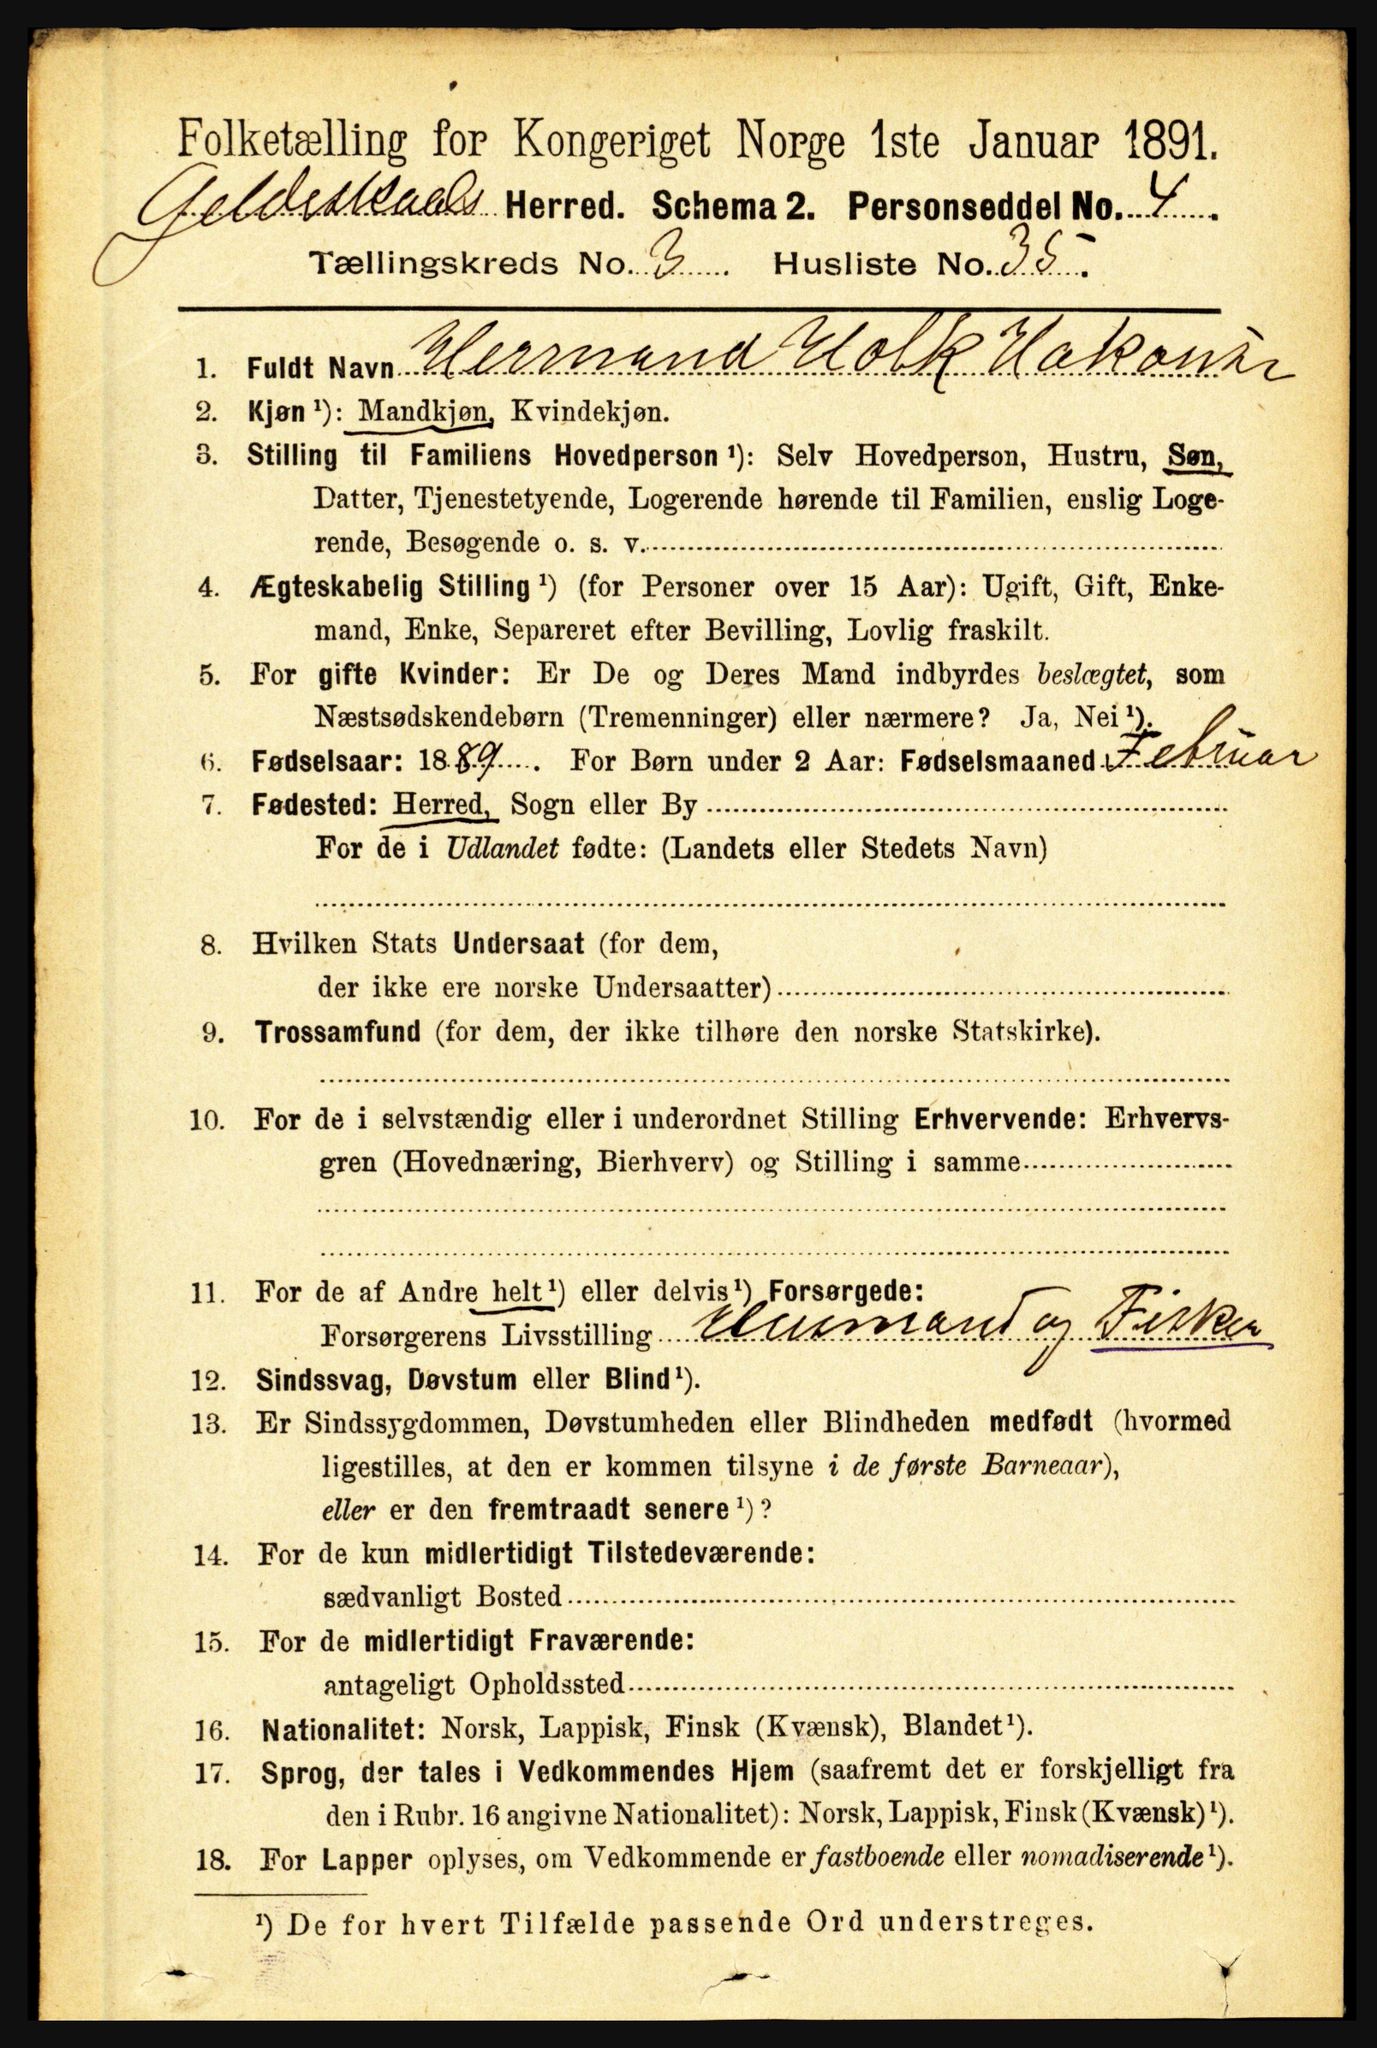 Folketælling for Kongeriget Norge 1ste Januar 1891.
Gildeskaals Herred. Schema 2. Personseddel No. 4.
Tællingskreds No. 3. Husliste No. 35.
1. Fuldt Navn Hermand Holk Hakonsen
2. Kjøn ¹): Mandkjøn, Kvindekjøn.
3. Stilling til Familiens Hovedperson ¹): Selv Hovedperson, Hustru, Søn,
Datter, Tjenestetyende, Logerende hørende til Familien, enslig Loge-
rende, Besøgende o. s. v.
4. Ægteskabelig Stilling ¹) (for Personer over 15 Aar): Ugift, Gift, Enke-
mand, Enke, Separeret efter Bevilling, Lovlig fraskilt.
5. For gifte Kvinder: Er De og Deres Mand indbyrdes beslægtet, som
Næstsødskendebørn (Tremenninger) eller nærmere? Ja, Nei ¹).
6. Fødselsaar: 1889. For Børn under 2 Aar: Fødselsmaaned Februar
7. Fødested: Herred, Sogn eller By
For de i Udlandet fødte: (Landets eller Stedets Navn)
8. Hvilken Stats Undersaat (for dem,
der ikke ere norske Undersaatter)
9. Trossamfund (for dem, der ikke tilhøre den norske Statskirke).
10. For de i selvstændig eller i underordnet Stilling Erhvervende: Erhvervs-
gren (Hovednæring, Bierhverv) og Stilling i samme
11. For de af Andre helt ¹) eller delvis ¹) Forsørgede:
Forsørgerens Livsstilling Husmand og Fisker
12. Sindssvag, Døvstum eller Blind ¹).
13. Er Sindssygdommen, Døvstumheden eller Blindheden medfødt (hvormed
ligestilles, at den er kommen tilsyne i de første Barneaar),
eller er den fremtraadt senere ¹)?
14. For de kun midlertidigt Tilstedeværende:
sædvanligt Bosted
15. For de midlertidigt Fraværende:
antageligt Opholdssted
16. Nationalitet: Norsk, Lappisk, Finsk (Kvænsk), Blandet ¹).
17. Sprog, der tales i Vedkommendes Hjem (saafremt det er forskjelligt fra
den i Rubr. 16 angivne Nationalitet): Norsk, Lappisk, Finsk (Kvænsk) ¹).
18. For Lapper oplyses, om Vedkommende er fastboende eller nomadiserende ¹).
¹) De for hvert Tilfælde passende Ord understreges.